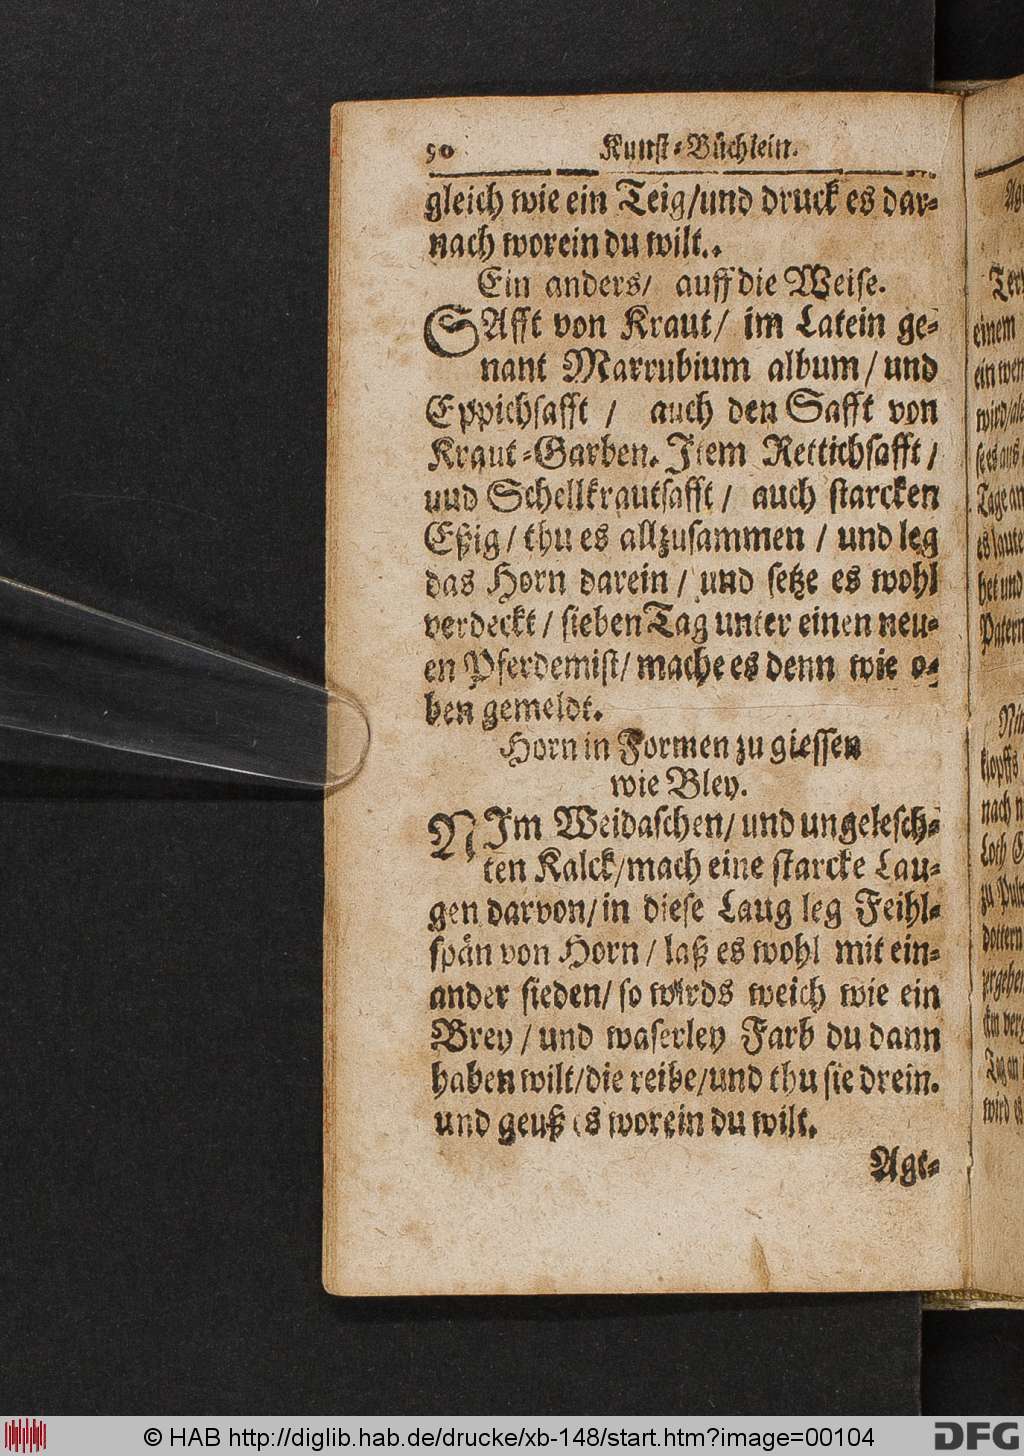 90 Kunst-Büchlein.
gleich wie ein Teig/und druck es dar-
nach worein du wilt..
Ein anders/ auff die Weise.
SAfft von Kraut/ im Latein ge-
nant Marrubium album/ und
Eppichsafft / auch den Safft von
Kraut-Garben. Item Rettichsafft/
uud Schellkrautsafft/ auch starcken
Eßig/ thu es allzusammen / und leg
das Horn darein/ und setze es wohl
verdeckt/ sieben Tag unter einen neu-
en Pferdemist/ mache es denn wie o-
ben gemeldt.
Horn in Formen zu giessen
wie Bley.
NIm Weidaschen/ und ungelesch-
ten Kalck/mach eine starcke Lau-
gen darvon/in diese Laug leg Feihl-
spän von Horn/ laß es wohl mit ein-
ander sieden/ so wirds weich wie ein
Brey/ und waserley Farb du dann
haben wilt/die reibe/und thu sie drein.
und geuß es worein du wilt.
Agt-
einem
Tage an
© HAB http://diglib.hab.de/drucke/xb-148/start.htm?image=00104
DFG